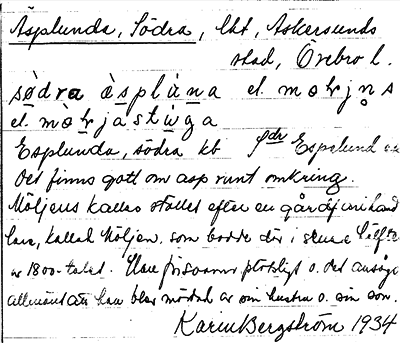 Äsplunda, Södra, lht, Askersunds
stad, Örebro l.
södra àsplùna el. 
el. 
Esplunda, södra kb Sdr Esplund
Det finns gott om asp runt omkring.
Möljens kallas stället efter en gårdf
lare, kallad Möljen, som bodde där i senare hälften
av 1800-talet. Han försvann plötsligt o. det ansågs
allmänt att han blev mördad av sin hustru o. sin son.
Karin Bergström 1934